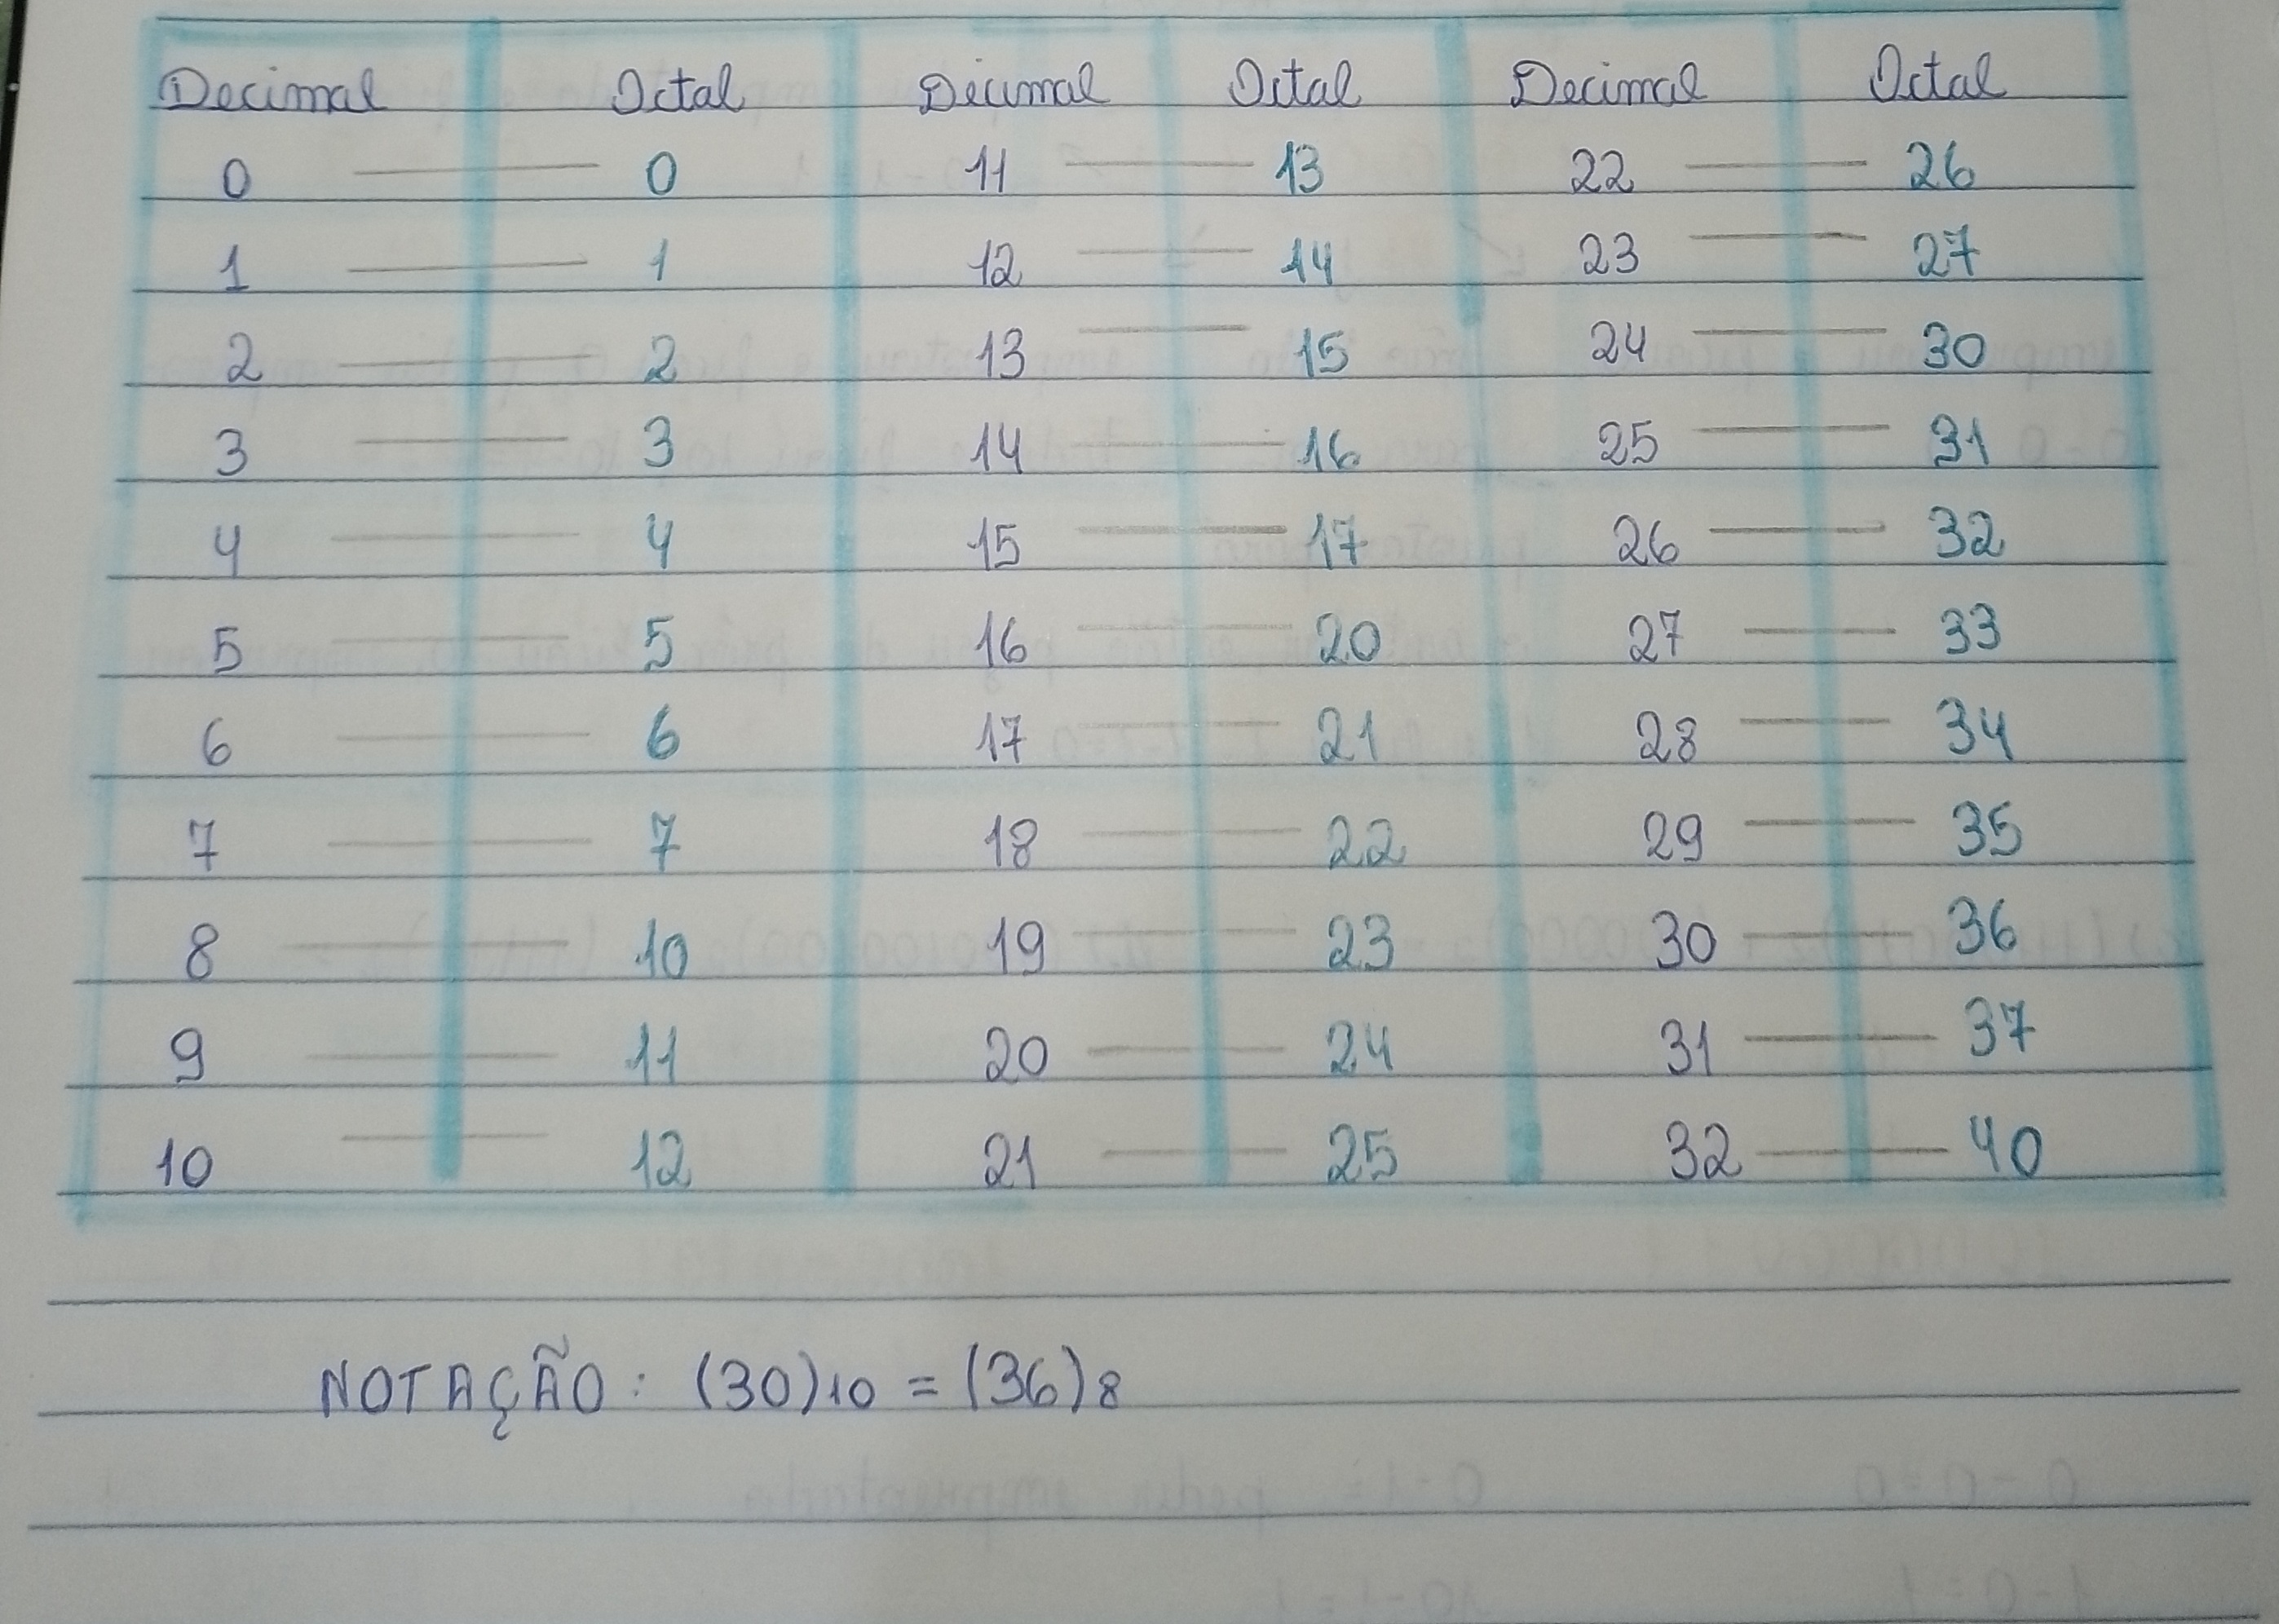 Decimal Octal Decimal Octal Decimal Octal
0 — 0 11 — 13 22 — 26
1 — 1 12 — 14 23 — 27
2 — 2 13 — 15 24 — 30
3 — 3 14 — 16 25 — 31
4 — 4 15 — 17 26 — 32
5 — 5 16 — 20 27 — 33
6 — 6 17 — 21 28 — 34
7 — 7 18 — 22 29 — 35
8 — 10 19 — 23 30 — 36
9 — 11 20 — 24 31 — 37
10 — 12 21 — 25 32 — 40
NOTAÇÃO: (30)10 = (36)8